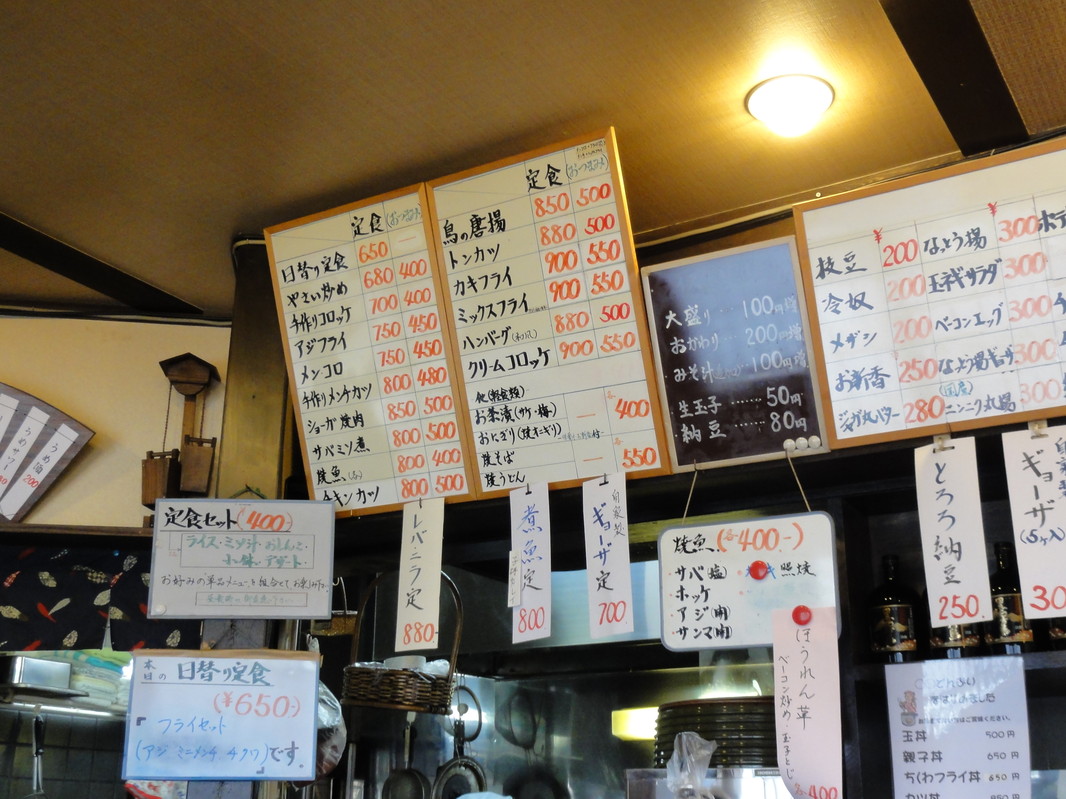 定食(おつまみ)
日替り定食 650 —
やさい炒め 680 400
手作りコロッケ 700 400
アジフライ 750 450
メンコロ 750 450
手作りメンチカツ 800 480
ショーガ焼肉 850 500
サバミソ煮 800 500
焼魚(各) 800 400
チキンカツ 800 500
定食(おつまみ)
鳥の唐揚 850 500
トンカツ 880 500
カキフライ 900 550
ミックスフライ 900 550
ハンバーグ(和風) 880 500
クリームコロッケ 900 550
他(軽食類)
お茶漬(サケ・梅) — 400
おにぎり(焼オニギリ) —
焼そば 550
焼うどん
大盛り … 100円増
おかわり … 200円増
みそ汁 100円増
生玉子 …… 50円
納豆 …… 80円
枝豆 ¥200
冷奴 200
メザシ 200
お新香 250
ジャガ丸バター 280
なっとう揚 ¥300
玉ネギサラダ 300
ベーコンエッグ 300
なっとう明ギョーザ 300
(国産)ニンニク丸揚 300
うめサワー
うめ酒 200
定食セット(400-)
ライス・ミソ汁・おしんこ・
小鉢・デザート
お好みの単品メニューと組合せてお楽しみ下さい
本日の 日替り定食
(¥650-)
『フライセット
(アジ ミニメンチ チクワ)です。』
レバニラ定 880-
煮魚定 800
自家製 ギョーザ定 700.
焼魚(各-400-)
・サバ(塩)
・ホッケ
・アジ(開)
・サンマ(開)
照焼
ほうれん草
ベーコン炒め・玉子とじ
各400
とろろ納豆 250.
ギョーザ(5ヶ入) 30
玉丼 500円
親子丼 650円
ちくわフライ丼 650円
カツ丼 850円